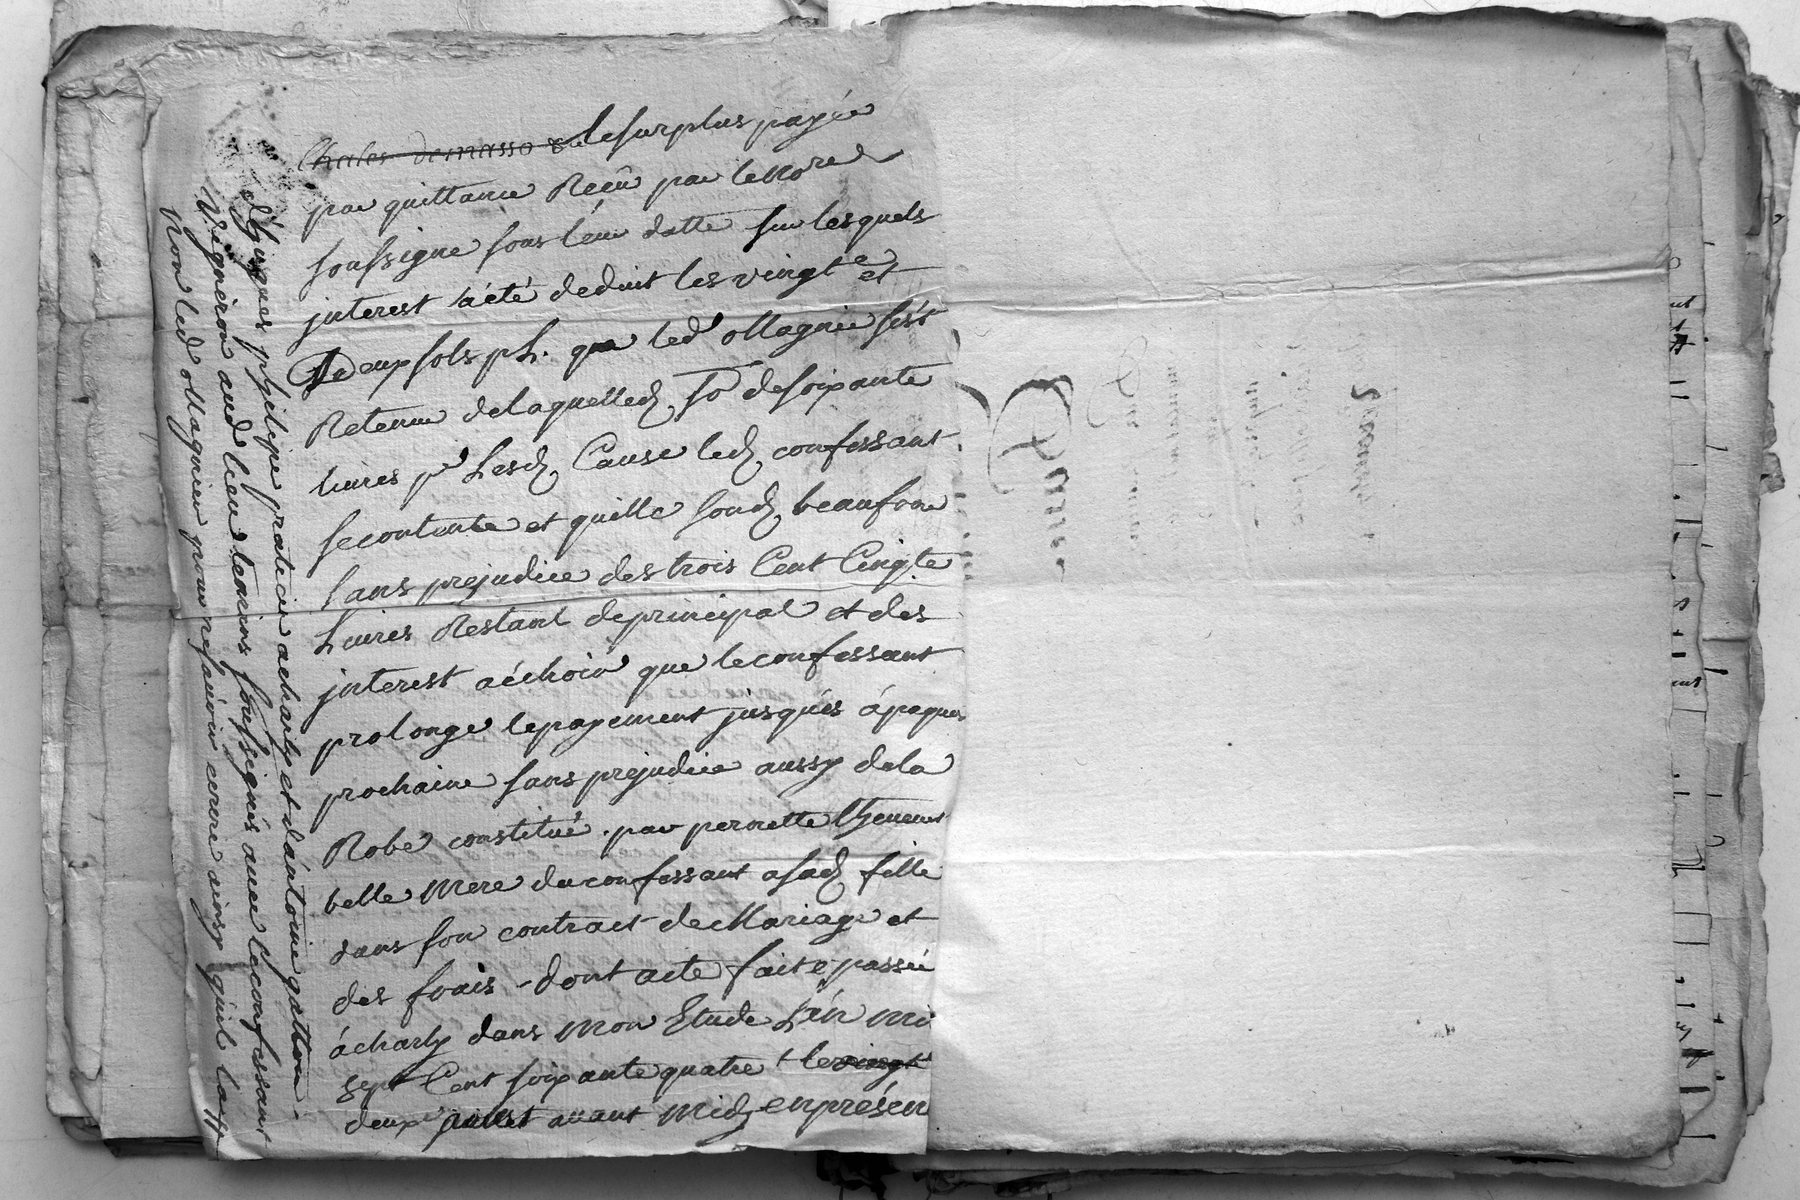 Chales demasso & le surplus payée
par quittance Reçû par le no.re
soussigne sous leur datte sur lesquels
interest a été deduit les vingte et
Deux sols p L. que led ollagnier s'est
Retenu de laquelled so de soixante
livres pr Lesd Cause led confessant
se contente et quitte sond beaufrere
sans prejudice des trois Cent Cinqte
Livres Restant de principal et des
interest a échoir que le confessant
prolonge le payement jusqués á paques
prochaine sans prejudice aussy de la
Robe constitué par pernette
belle Mere du confessant a sad fille
dans son contract de Mariage et
des frais - dont acte fait & passée
á charly dans mon Etude L'an mi
sept Cent soixante quatre le vingt
deux juillet avant midy en présen
d'hugues philipe praticien a charly et d'antoine gatton
Vigneron aud lieu temoins soussignés avec le confessant
Non led ollagnier pour ne savoir ecrire ainsy quil la